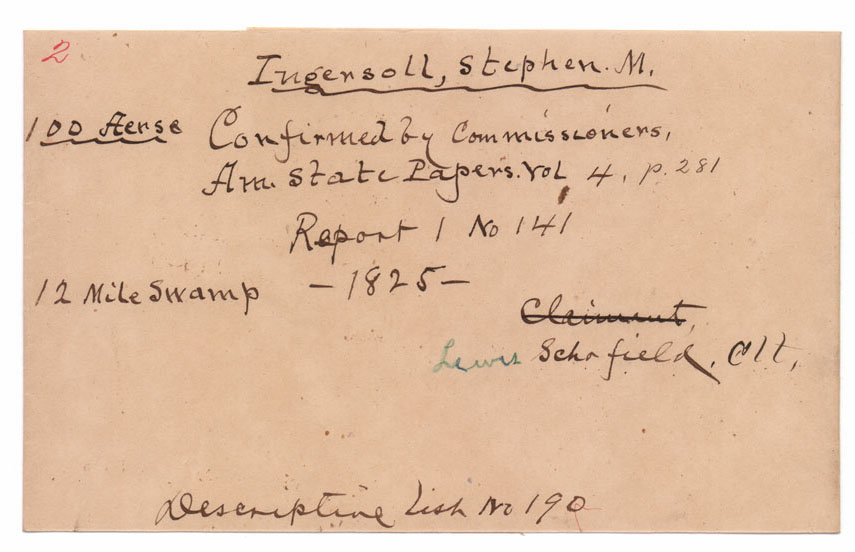 2
Ingersoll, Stephen. M.
100 Acrse Confirmed by Commissioners,
Am. State Papers. Vol 4, p. 281
Report 1 No 141
12 Mile Swamp – 1825 –
Claimant,
Lewis Schofield, Clt,
Descriptive List No 190